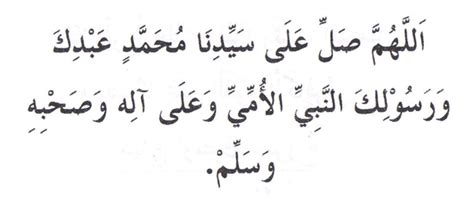 اَللَّهُمَّ صَلِّ عَلَى سَيِّدِنَا مُحَمَّدٍ عَبْدِكَ
وَرَسُوْلِكَ النَّبِيِّ الأُمِّيِّ وَعَلَى آلِهِ وَصَحْبِهِ
وَسَلِّمْ.